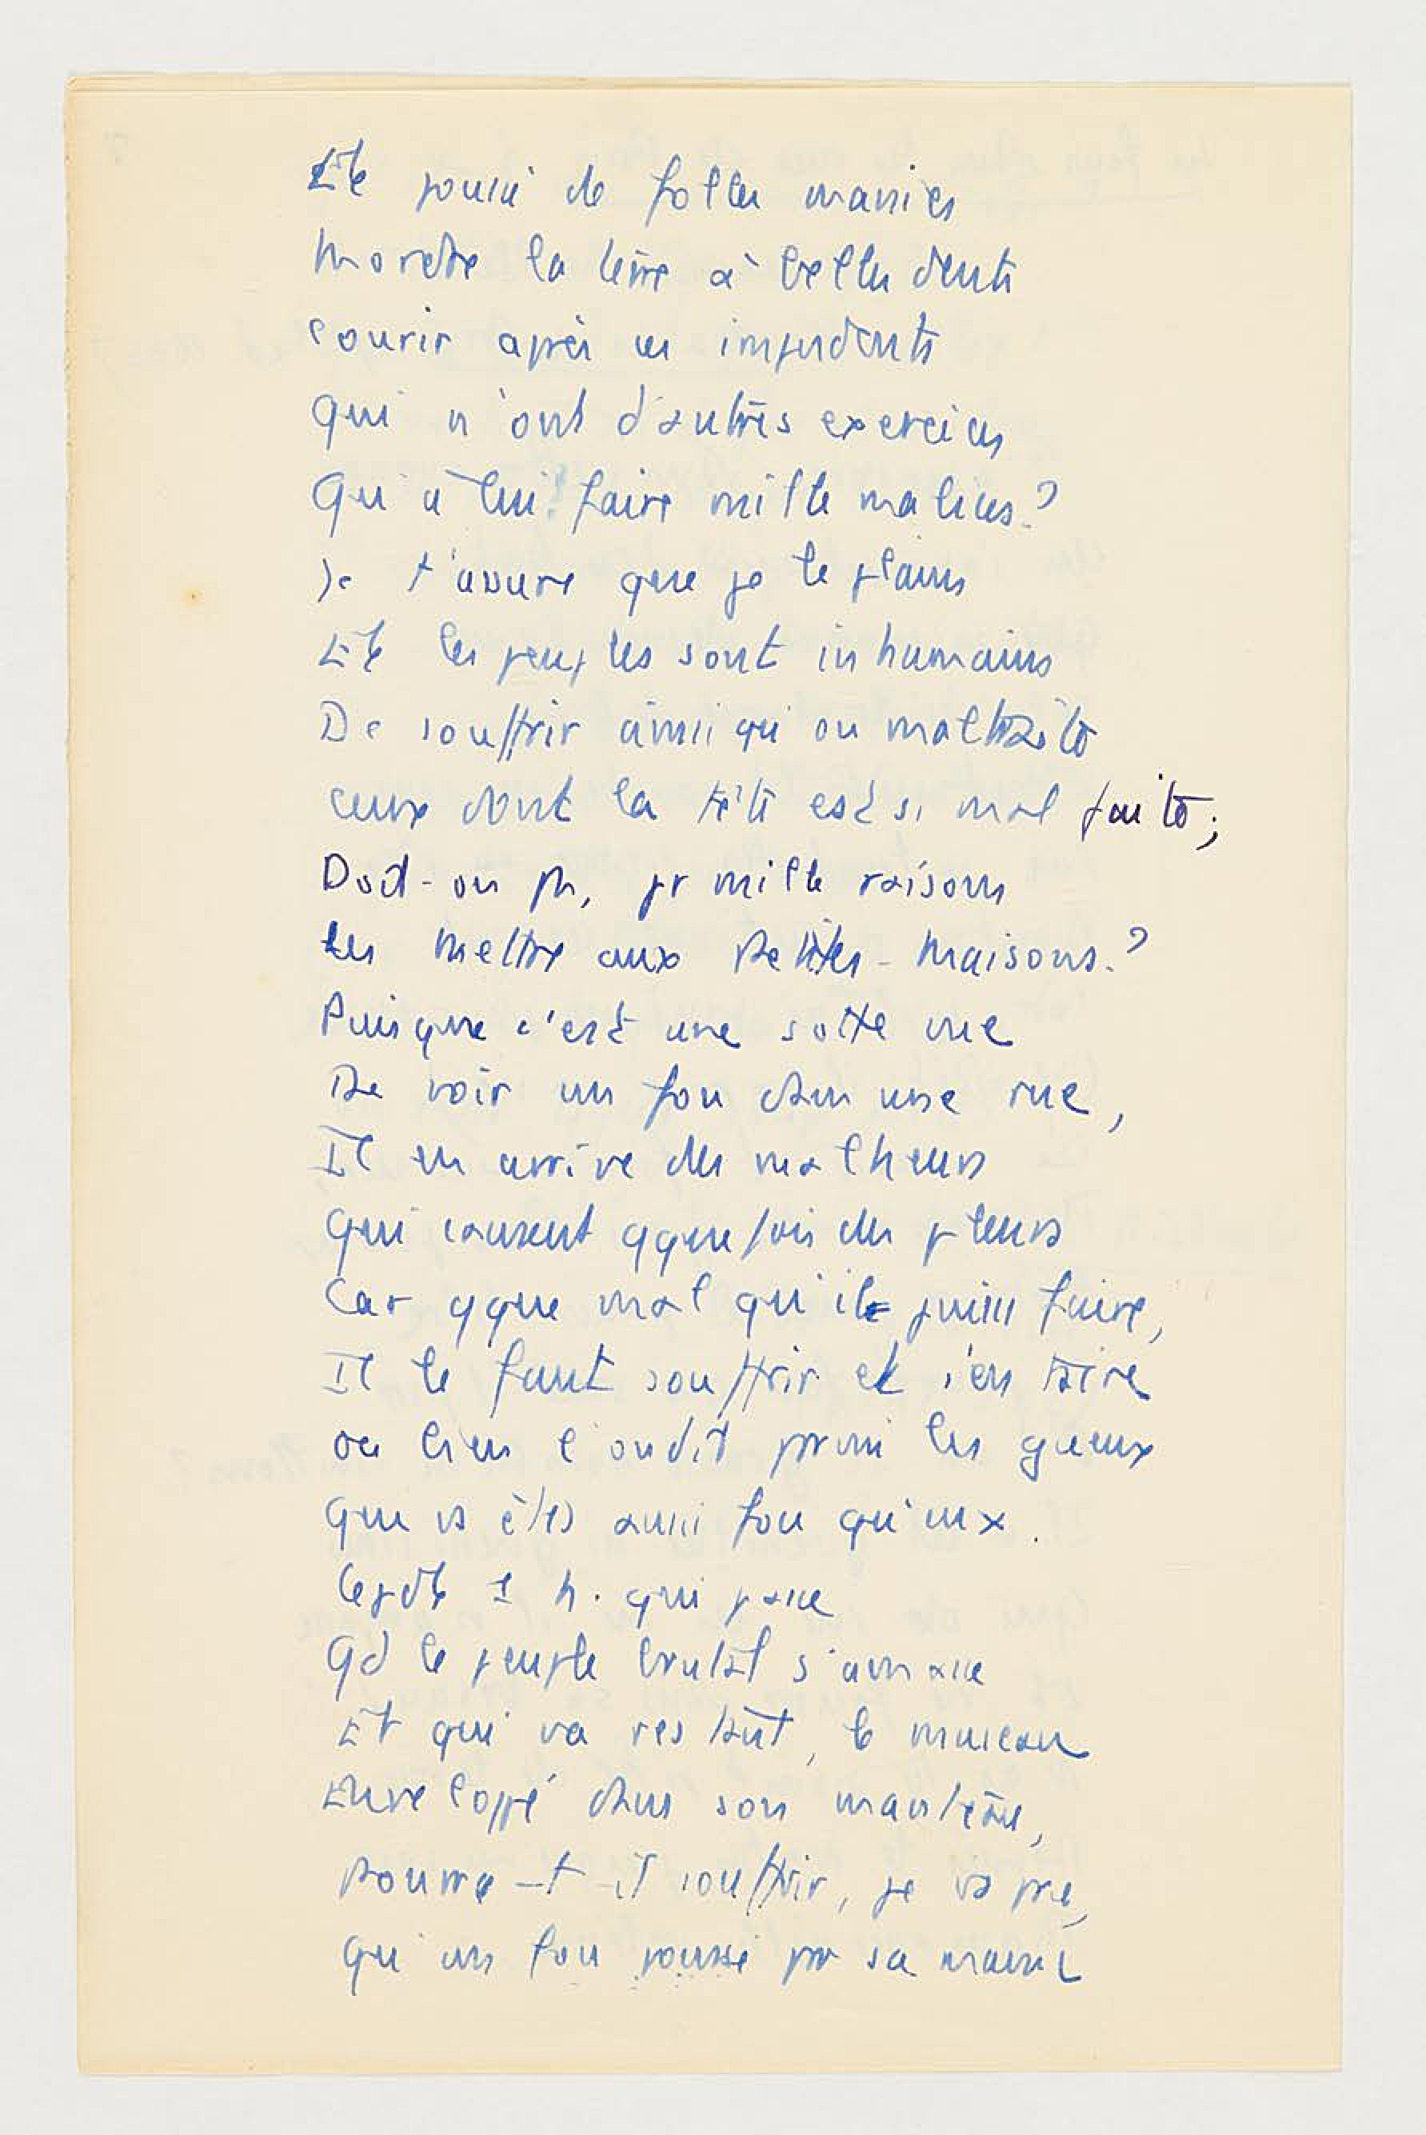 Et poussé de folles manies
Mordre la terre à belles dents
Courir après ces impudents
Qui n'ont d'autres exercices
Qu'à leur faire mille malices ?
Je t'assure que je le plains
Et les peuples sont inhumains
De souffrir ainsi qu'on maltraite
ceux dont la tête est si mal faite ;
Doit-on pas, pr mille raisons
Les mettre aux Petites-Maisons ?
Puisque c'est une sotte vue
De voir un fou dans une rue,
Il en arrive des malheurs
Qui causent qquefois des pleurs
Car qque mal qu'ils puiss faire,
Il le faut souffrir et s'en taire
ou bien l'on dit parmi les gueux
Que vs êtes aussi fou qu'eux.
Cepdt 1 h. qui passe
Qd le peuple brutal s'amasse
Et qui va rêvant, le museau
Enveloppé dans son manteau,
Pourra-t-il souffrir, je vs prie,
Qu'un fou poussé par sa manie